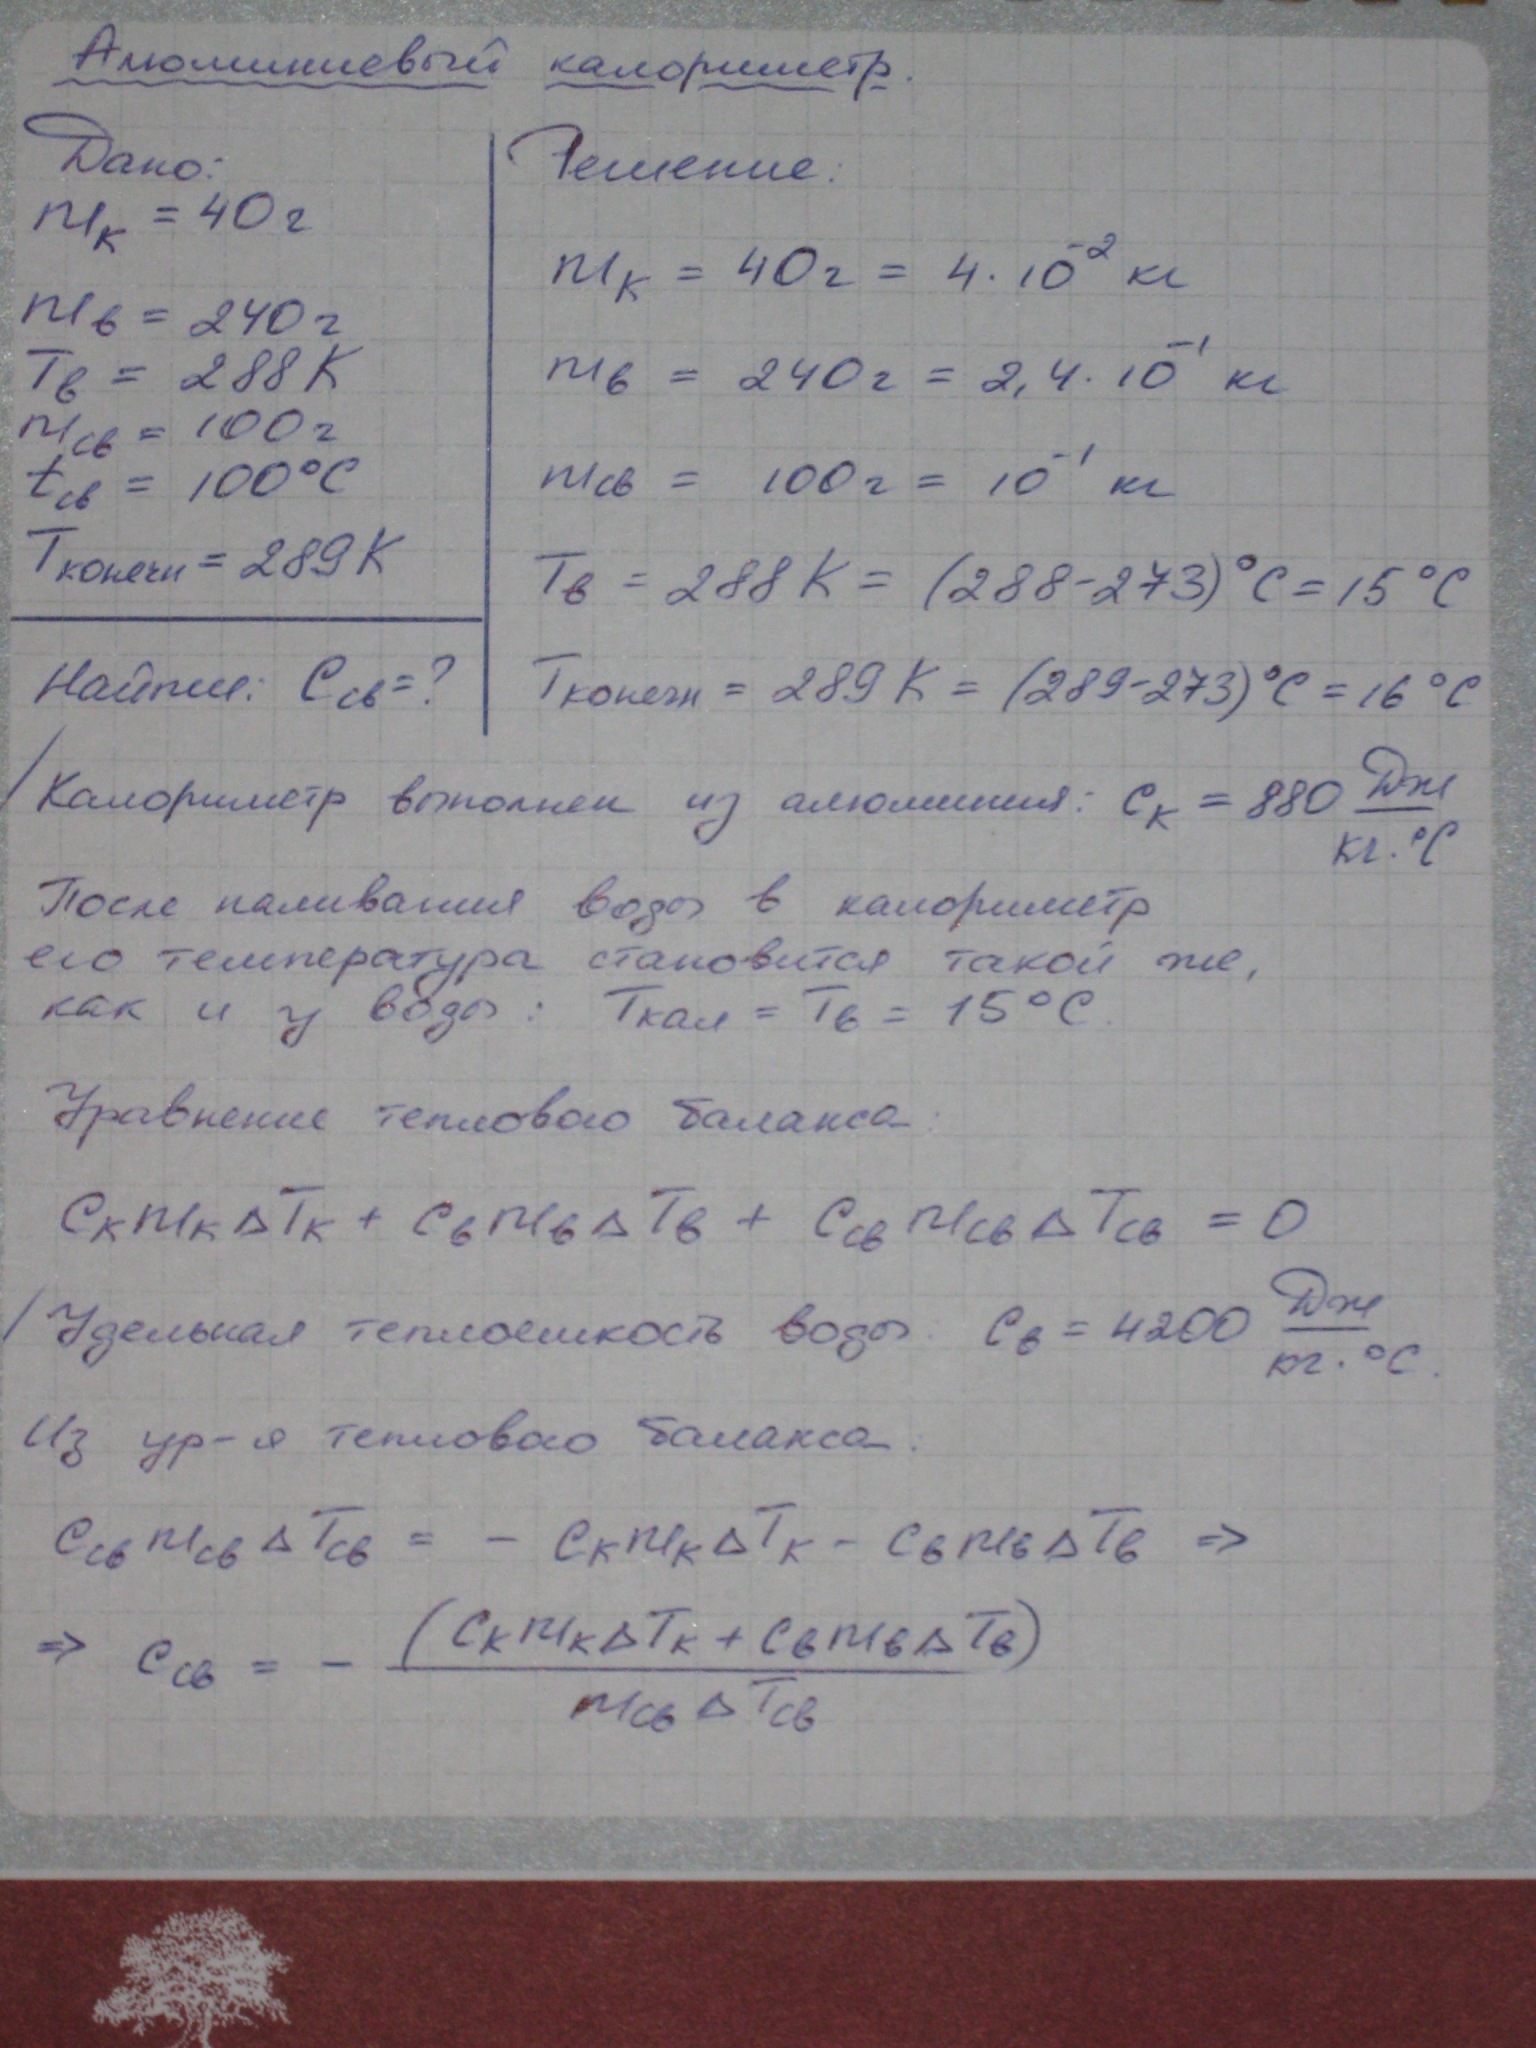 Алюминиевый калориметр.
Дано:
mк = 40г
mв = 240г
Tв = 288К
mсв = 100г
tсв = 100°С
Tконечн = 289К
Найти: Cсв = ?
Решение:
mк = 40г = 4·10⁻² кг
mв = 240г = 2,4·10⁻¹ кг
mсв = 100г = 10⁻¹ кг
Tв = 288К = (288-273)°С = 15°С
Tконечн = 289К = (289-273)°С = 16°С
/Калориметр выполнен из алюминия: Cк = 880 Дж/кг·°С
После наливания воды в калориметр
его температура становится такой же,
как и у воды: Tкал = Tв = 15°С.
Уравнение теплового баланса:
CкmкΔTк + CвmвΔTв + CсвmсвΔTсв = 0
/Удельная теплоемкость воды: Cв = 4200 Дж/кг·°С.
Из ур-я теплового баланса:
CсвmсвΔTсв = - CкmкΔTк - CвmвΔTв ⇒
⇒ Cсв = - (CкmкΔTк + CвmвΔTв)/mсвΔTсв